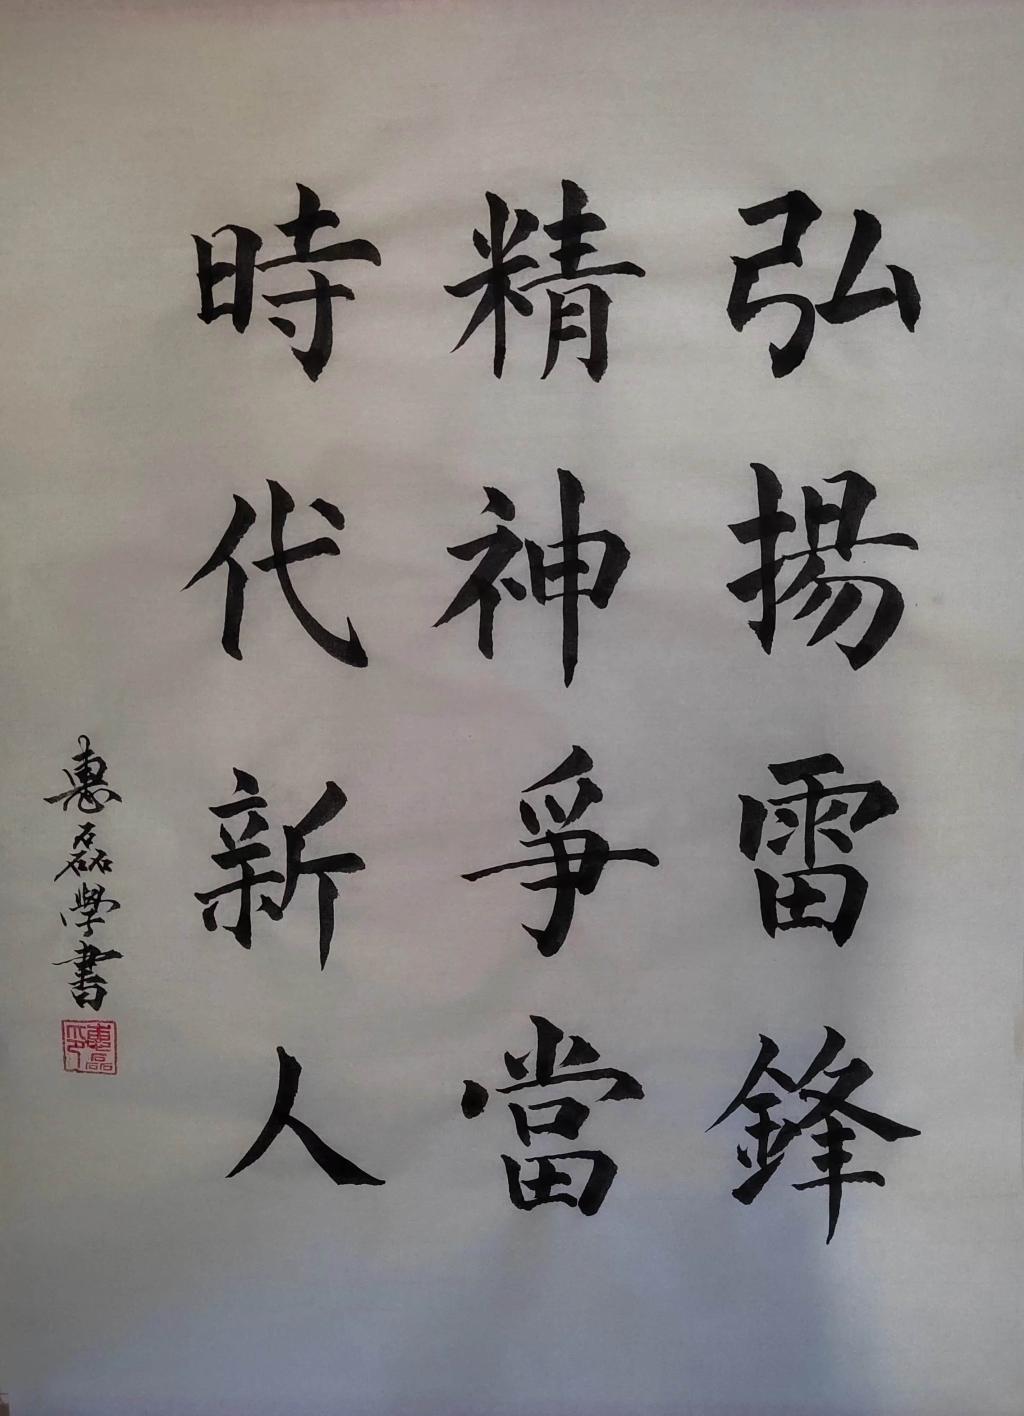 弘揚雷鋒
精神爭當
時代新人
惠磊學書
惠磊印